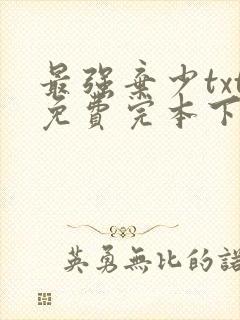 最強棄少txt
免費完本下
英勇無比的諾